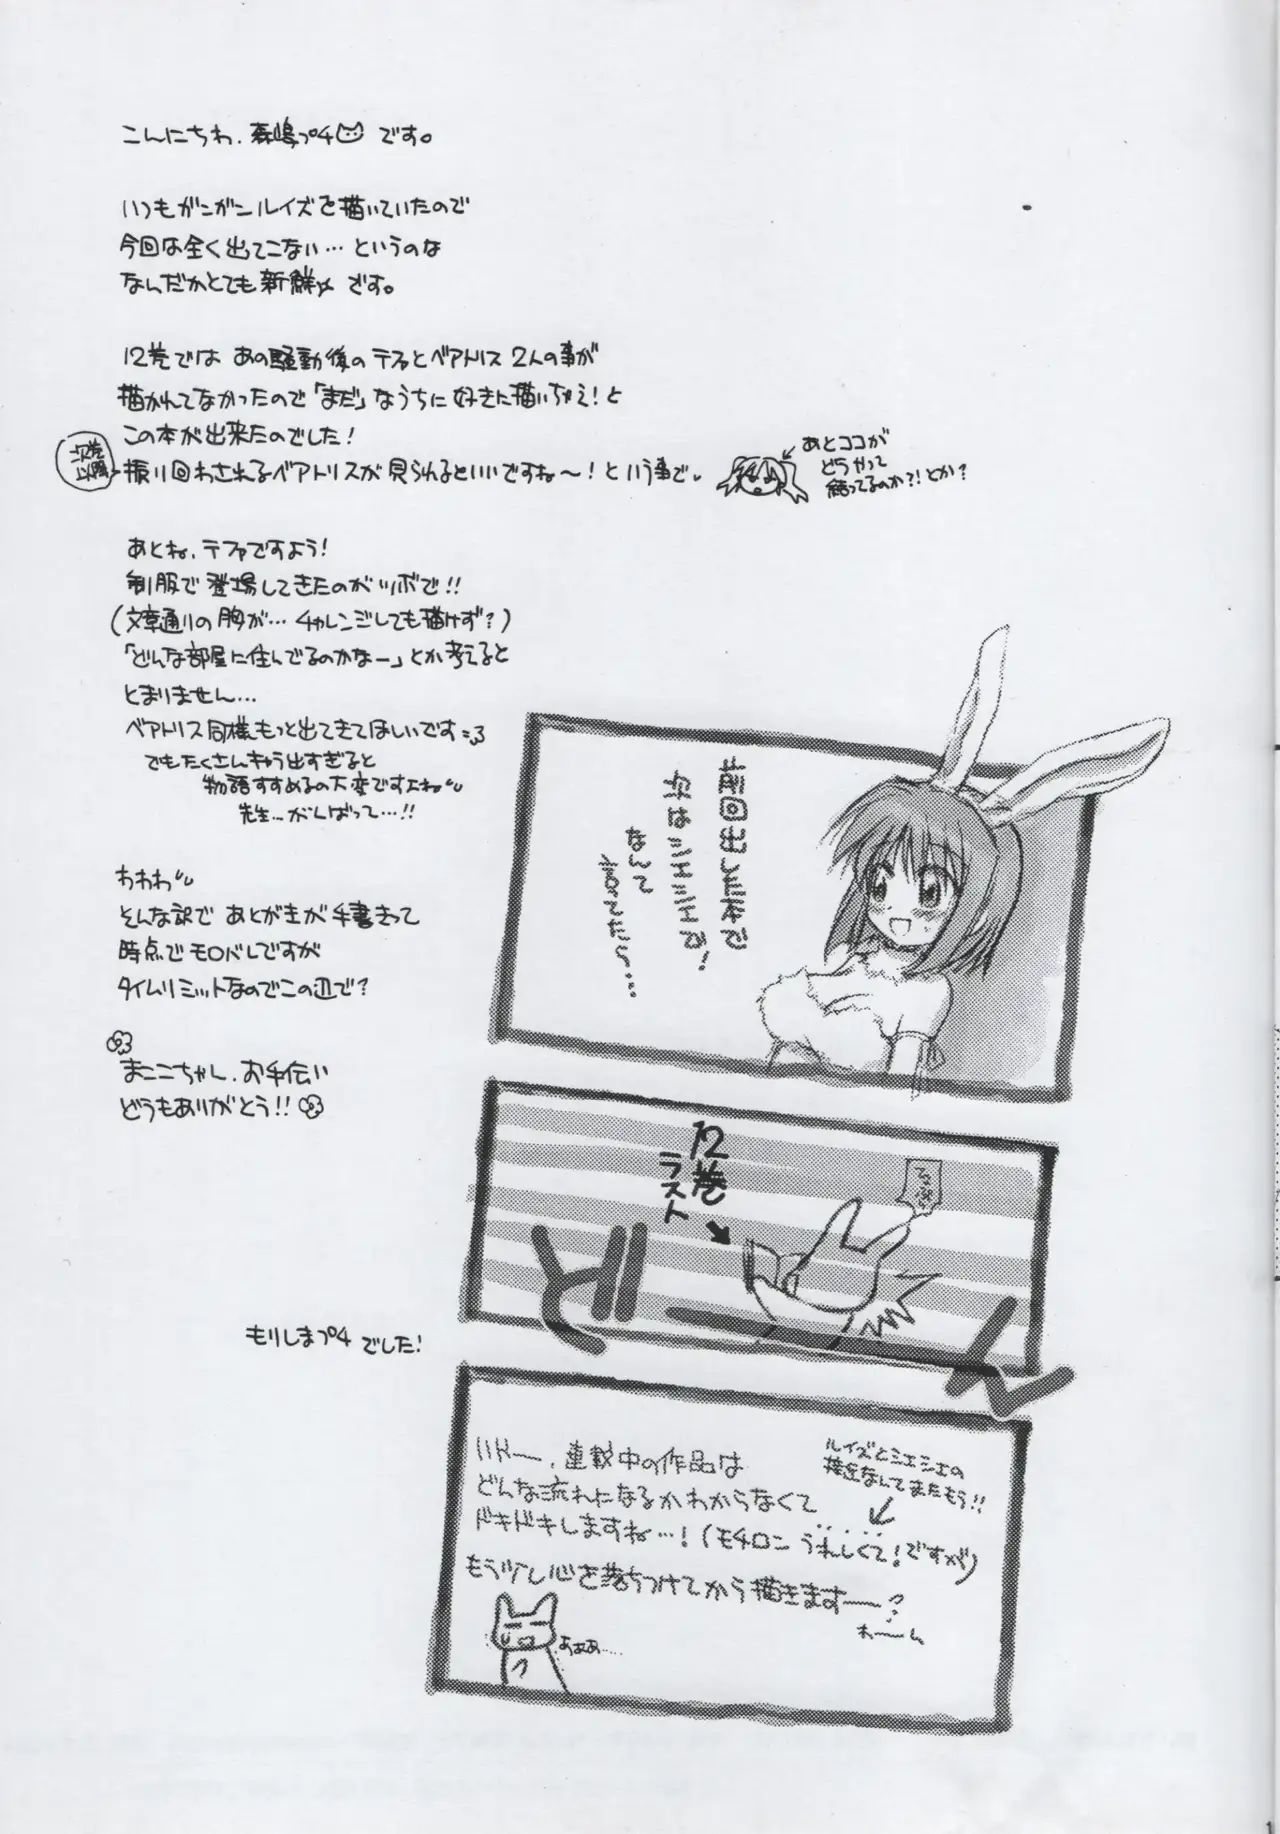 こんにちわ、森嶋プチです。
いつもガンガンルイズを描いていたので
今回は全く出てこない…というのな
なんだかとても新鮮です。
12巻では あの騒動後のテファとベアトリス 2人の事が
描かれてなかったので「まだ」なうちに 好きに描いちゃえ!と
この本が出来たのでした!
次巻
以降
振り回わされるベアトリスが見られるといいですね〜!という事で。
あとココが
どうやって
結ってるのか?!とか?
あとね、テファですよう!
制服で登場してきたのがツボで!!
(文章通りの胸が…チャレンジしても描けず?)
「どんな部屋に住んでるのかなー」とか考えると
とまりません…
ベアトリス同様もっと出てきてほしいです
でもたくさんキャラ出すぎると
物語すすめるの大変ですよね
先生…がんばって…!!
わわわ
そんな訳で あとがきが手書きって
時点でモロバレですが
タイムリミットなのでこの辺で?
まここちゃん、お手伝い
どうもありがとう!!
もりしまプチ でした!
前回出しそびれで
次はシエシエで!
なんて
言ってたら…
12巻
ラスト
どーん
いやー、連載中の作品は
どんな流れになるかわからなくて
ドキドキしますね…!(モチロン うれしくて!ですが)
ルイズとシエシエの
接近なんてまたもう!!
もう少し心を落ちつけてから描きますー?
わーん
あああ……
1